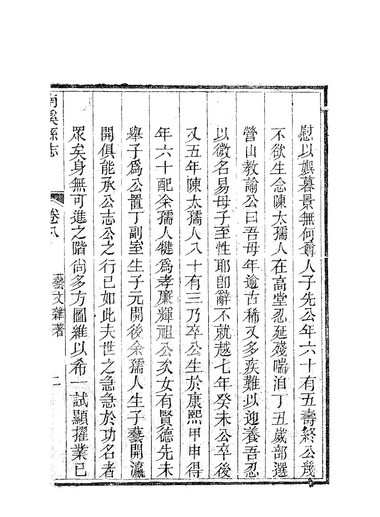 慰以娛暮景無何尊人子先公年六十有五壽終公幾
不欲生念陳太孺人在高堂忍延殘喘洎丁丑歲部選
營山教諭公曰吾母年逾古稀又多疾難以迎養吾忍
以微名易母子至性耶卽辭不就越七年癸未公卒後
又五年陳太孺人八十有三乃卒公生於康熙甲申得
年六十配余孺人犍爲孝廉輝祖公次女有賢德先未
舉子爲公置丁副室生子元開後余孺人生子藝開瀛
開俱能承公志公之行已如此夫世之急急於功名者
眾矣身無可進之階尙多方圖維以希一試顯擢業已
南溪縣志
卷八
藝文雜著
二